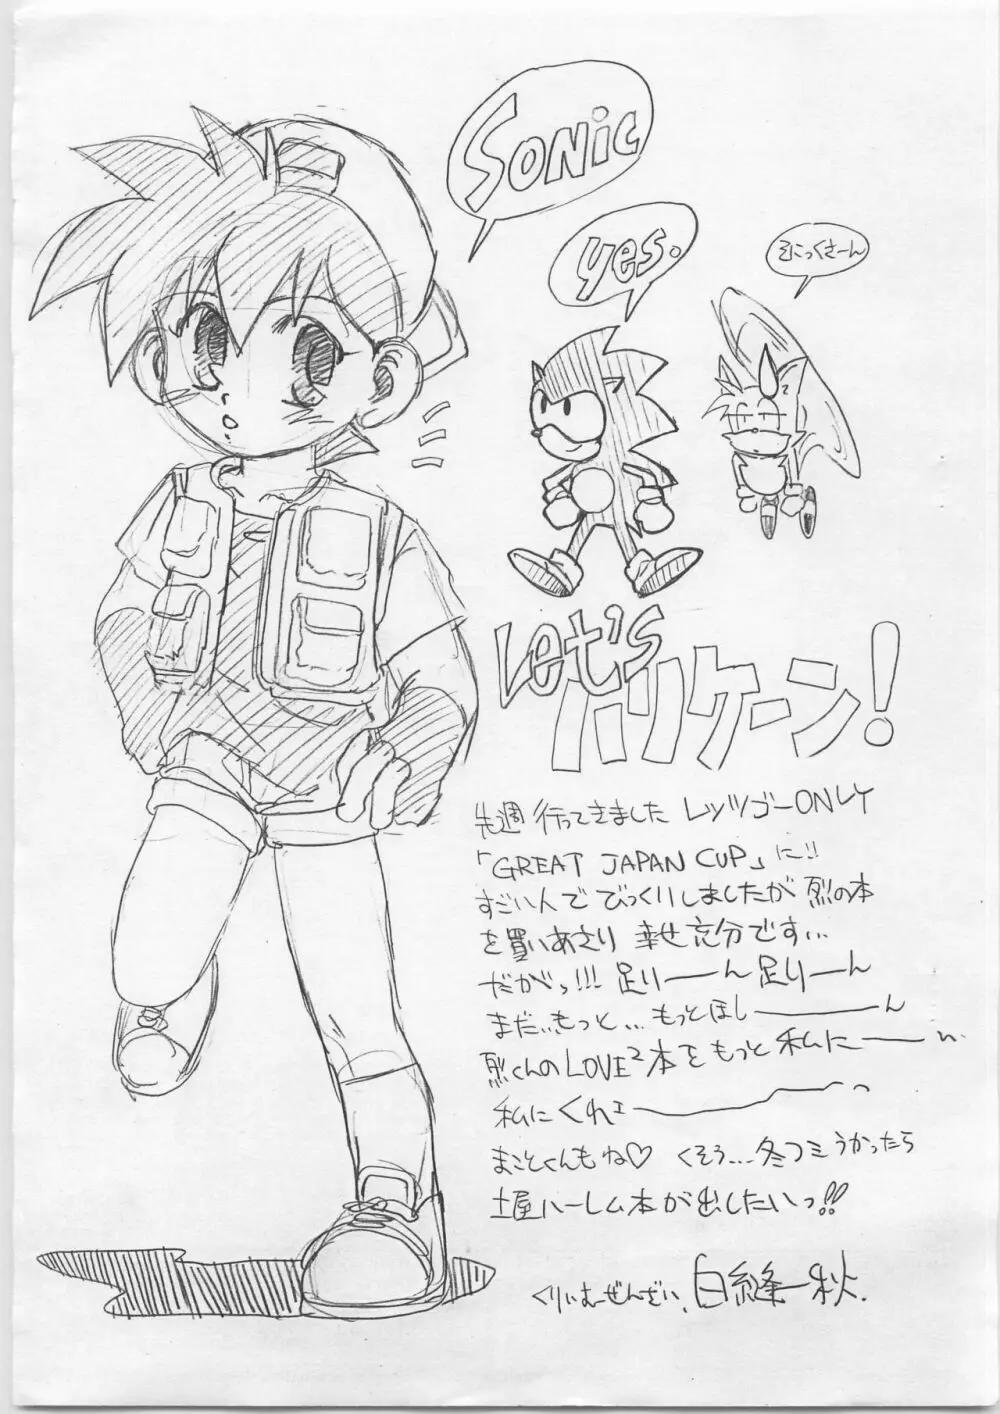 Sonic
yes.
そにっくさーん
Let's
ハリケーン!
先週 行ってきました レッツゴーONLY
「GREAT JAPAN CUP」に!!
すごい人で びっくりしましたが 烈の本
を買いあさり 幸せ充分です…
だがっ!!! 足りーん足りーん
まだ…もっと…もっとほしーーん
烈くんのLOVE²本をもっと 私にーー
私にくれェーーっ
まことくんもね♡ くそう…冬コミうかったら
土屋ハーレム本が出したいっ!!
くりぃむぜんざい、白縫一秋.